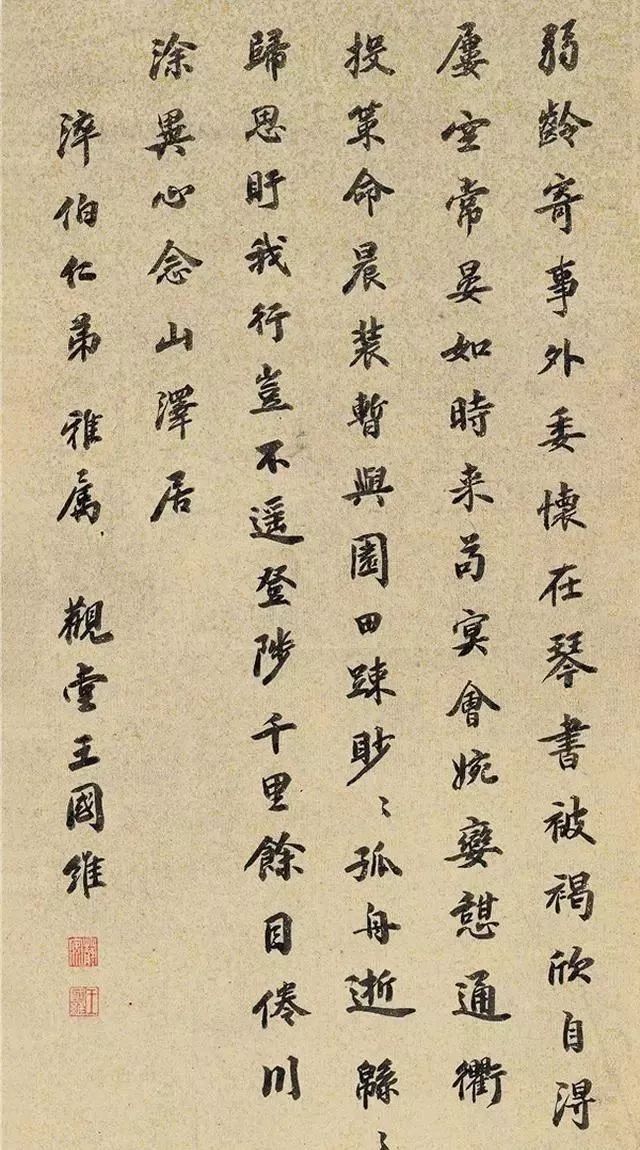 弱齡寄事外委懷在琴書被褐欣自淂
屢空常晏如時来苟冥會婉孌憇通衢
投策命晨裝暫與園田踈眇〻孤舟逝緜〻
歸思盱我行豈不遥登陟千里餘目倦川
涂異心念山澤居
淬伯仁弟雅属 觀堂王國維